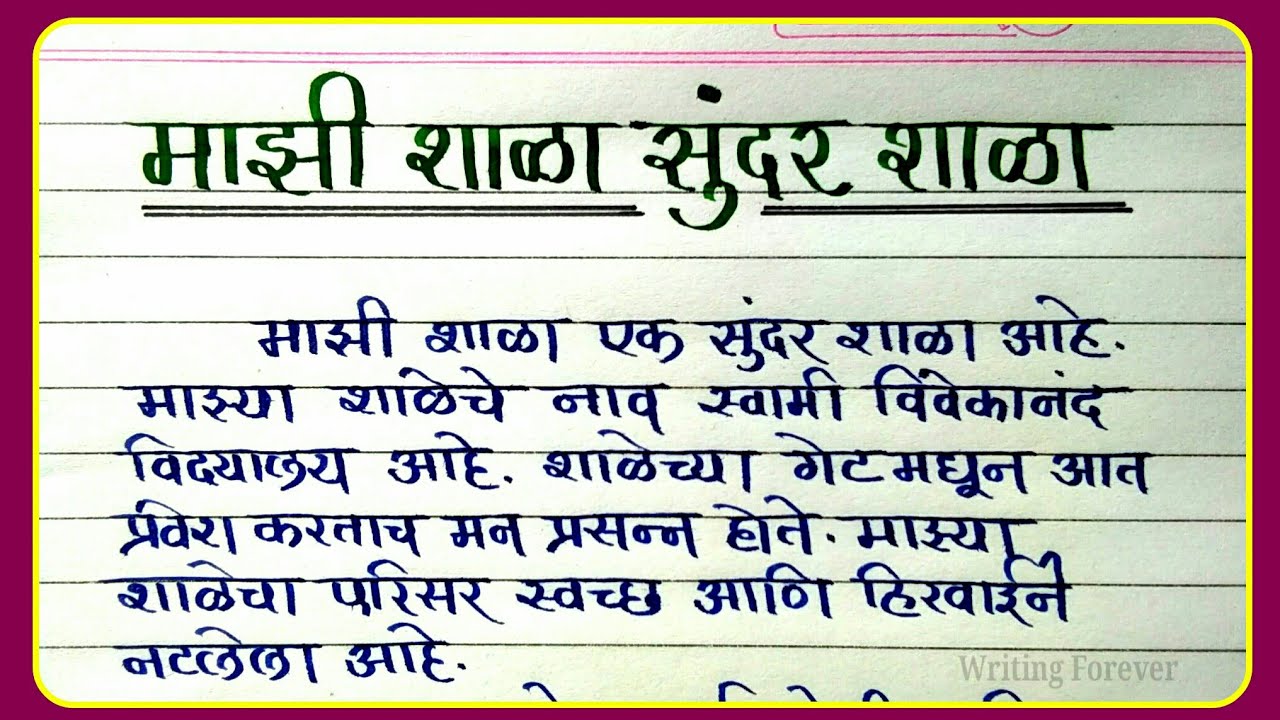 माझी शाळा सुंदर शाळा
माझी शाळा एक सुंदर शाळा आहे.
माझ्या शाळेचे नाव स्वामी विवेकानंद
विदयालय आहे. शाळेच्या गेटमधून आत
प्रवेश करताच मन प्रसन्न होते. माझ्या
शाळेचा परिसर स्वच्छ आणि हिरवाईने
नटलेला आहे.
Writing Forever